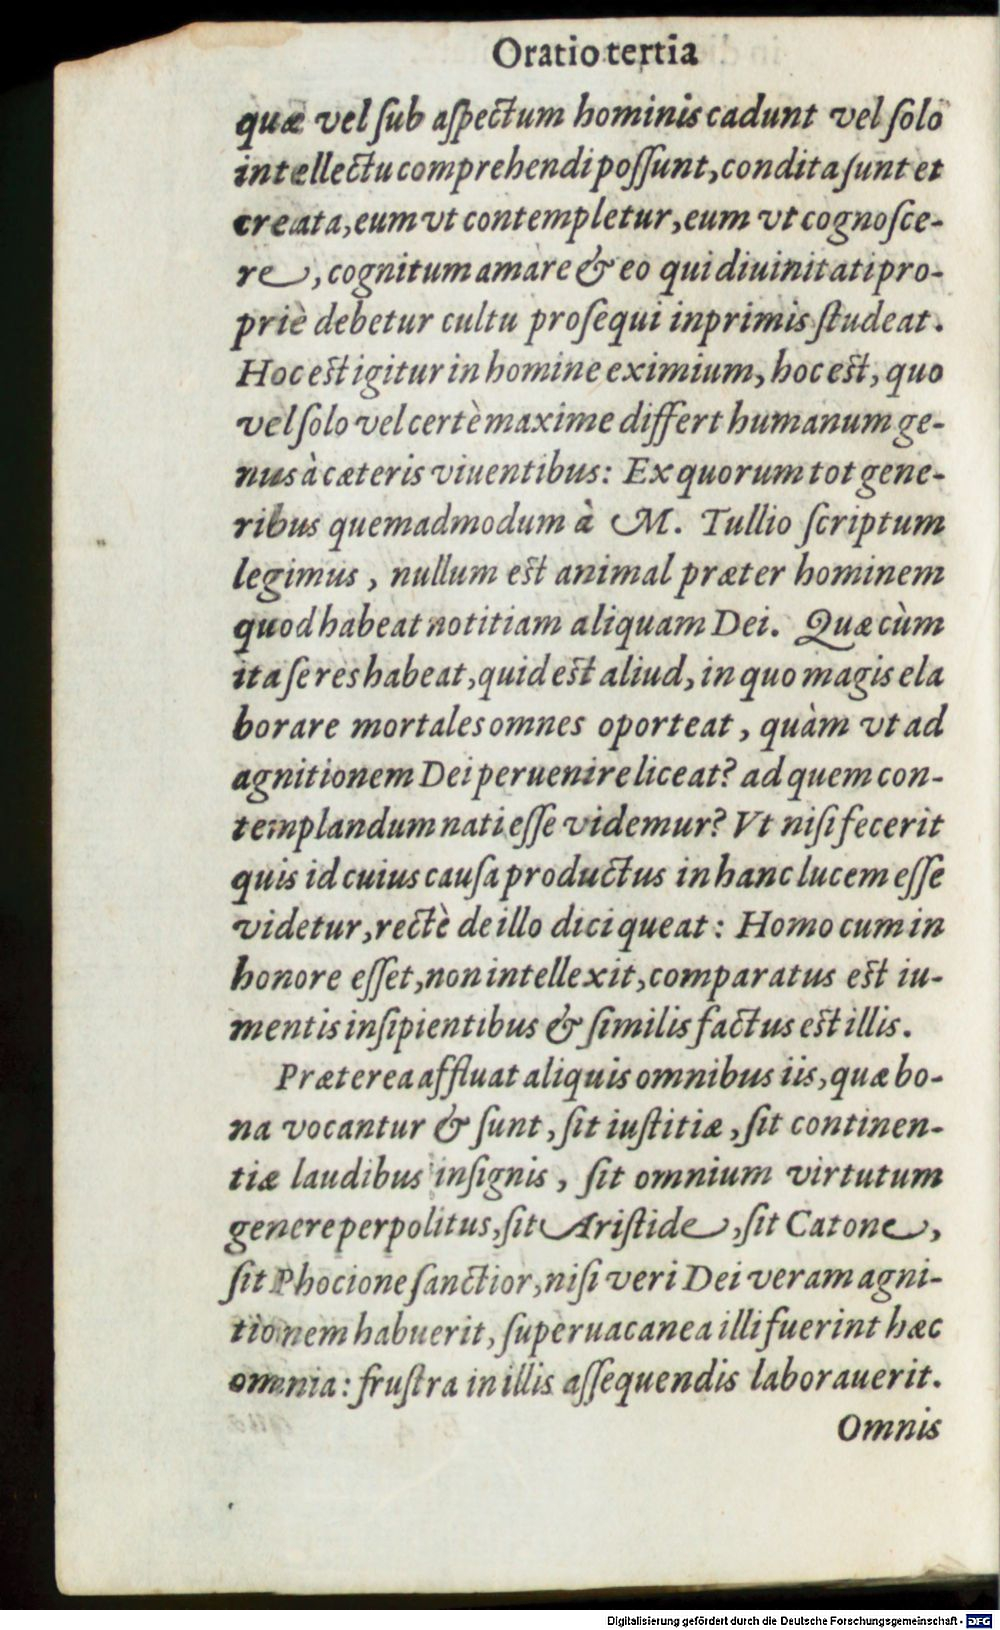 Oratio tertia
quæ vel ſub aſpectum hominis cadunt vel ſolo
intellectu comprehendi poſſunt, condita ſunt et
creata, eum vt contempletur, eum vt cognoſce-
re, cognitum amare & eo qui diuinitati pro-
priè debetur cultu proſequi inprimis ſtudeat.
Hoc est igitur in homine eximium, hoc est, quo
vel ſolo vel certè maxime differt humanum ge-
nus à cæteris viuentibus: Ex quorum tot gene-
ribus quemadmodum à M. Tullio ſcriptum
legimus, nullum est animal præter hominem
quod habeat notitiam aliquam Dei. Quæ cùm
ita ſe res habeat, quid est aliud, in quo magis ela
borare mortales omnes oporteat, quàm vt ad
agnitionem Dei peruenire liceat? ad quem con-
templandum nati eſſe videmur? Vt niſi fecerit
quis id cuius cauſa productus in hanc lucem eſſe
videtur, rectè de illo dici queat: Homo cum in
honore eſſet, non intellexit, comparatus est iu-
mentis inſipientibus & ſimilis factus est illis.
Præterea affluat aliquis omnibus iis, quæ bo-
na vocantur & ſunt, ſit iuſtitiæ, ſit continen-
tiæ laudibus inſignis, ſit omnium virtutum
genere perpolitus, ſit Ariſtide, ſit Catone,
ſit Phocione ſanctior, niſi veri Dei veram agni-
tionem habuerit, ſuperuacanea illi fuerint hæc
omnia: fruſtra in illis aſſequendis laborauerit.
Omnis
Digitalisierung gefördert durch die Deutsche Forschungsgemeinschaft - DFG